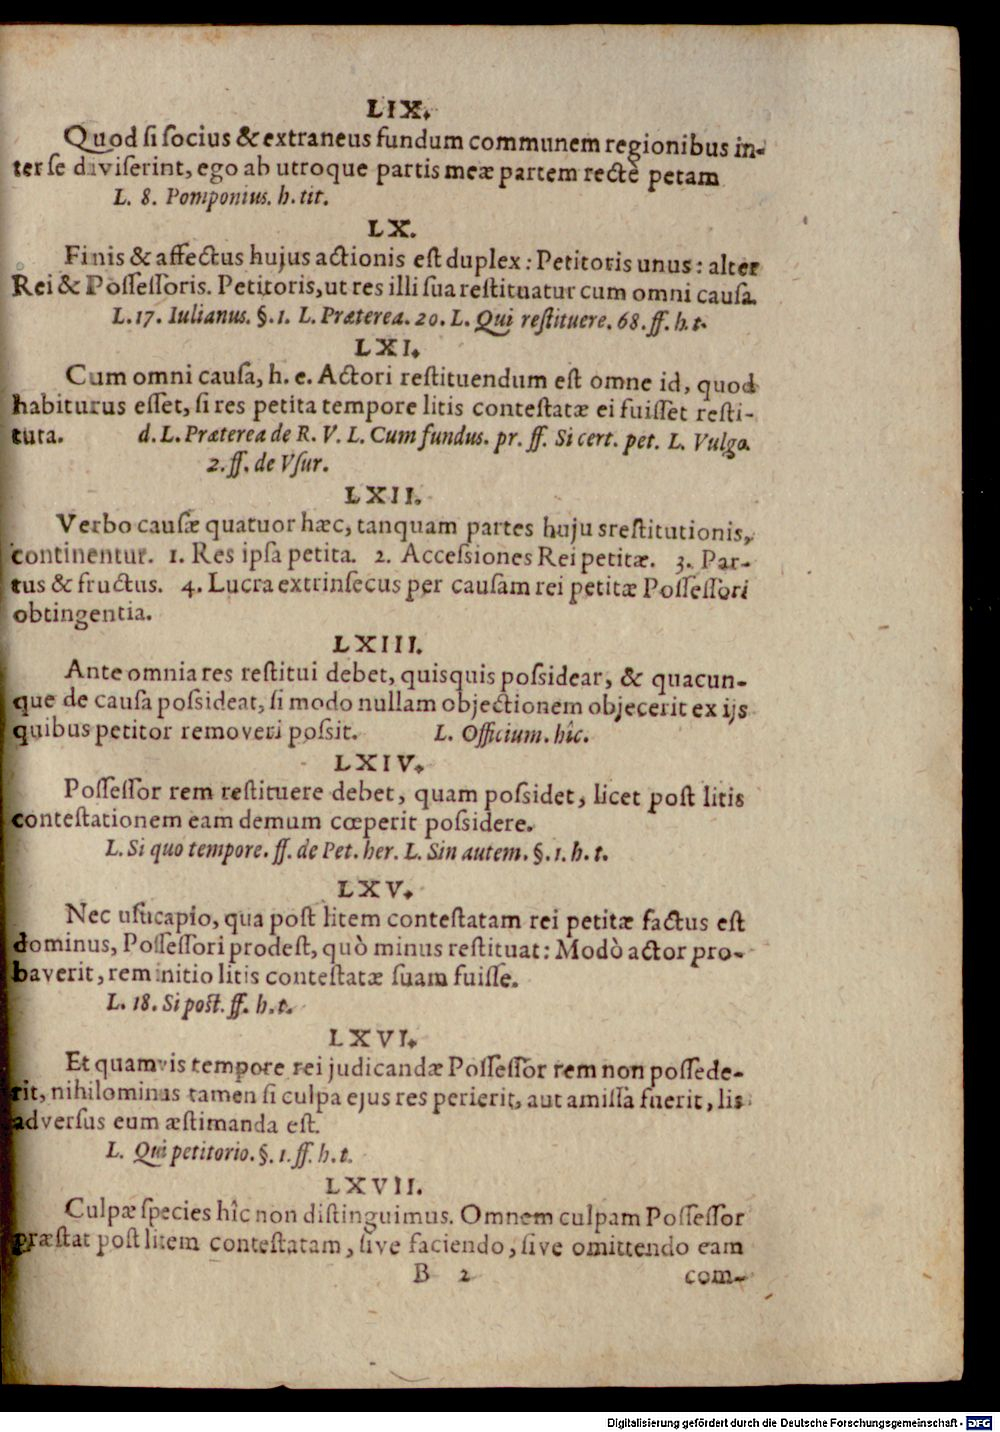 LIX.
Quod si socius & extraneus fundum communem regionibus in-
ter se diviserint, ego ab utroque partis meæ partem rectè petam
L. 8. Pomponius. h. tit.
LX.
Finis & affectus hujus actionis est duplex: Petitoris unus: alter
Rei & Possessoris. Petitoris, ut res illi sua restituatur cum omni causa.
L. 17. Iulianus. §. 1. L. Præterea. 20. L. Qui restituere. 68. ff. h. t.
LXI.
Cum omni causa, h. e. Actori restituendum est omne id, quod
habiturus esset, si res petita tempore litis contestatæ ei fuisset resti-
tuta. d. L. Præterea de R. V. L. Cum fundus. pr. ff. Si cert. pet. L. Vulgo.
2. ff. de Vsur.
LXII.
Verbo causæ quatuor hæc, tanquam partes huju srestitutionis,
continentur. 1. Res ipsa petita. 2. Accessiones Rei petitæ. 3. Par-
tus & fructus. 4. Lucra extrinsecus per causam rei petitæ Possessori
obtingentia.
LXIII.
Ante omnia res restitui debet, quisquis possidear, & quacun-
que de causa possideat, si modo nullam objectionem objecerit ex ijs
quibus petitor removeri possit. L. Officium. hîc.
LXIV.
Possessor rem restituere debet, quam possidet, licet post litis
contestationem eam demum cœperit possidere.
L. Si quo tempore. ff. de Pet. her. L. Sin autem. §. 1. h. t.
LXV.
Nec usucapio, qua post litem contestatam rei petitæ factus est
dominus, Possessori prodest, quò minus restituat: Modò actor pro-
baverit, rem initio litis contestatæ suam fuisse.
L. 18. Si post. ff. h. t.
LXVI.
Et quamvis tempore rei judicandæ Possessor rem non possede-
rit, nihilominus tamen si culpa ejus res perierit, aut amissa fuerit, lis
adversus eum æstimanda est.
L. Qui petitorio. §. 1. ff. h. t.
LXVII.
Culpæ species hîc non distinguimus. Omnem culpam Possessor
præstat post litem contestatam, sive faciendo, sive omittendo eam
B 2 com-
Digitalisierung gefördert durch die Deutsche Forschungsgemeinschaft - DFG